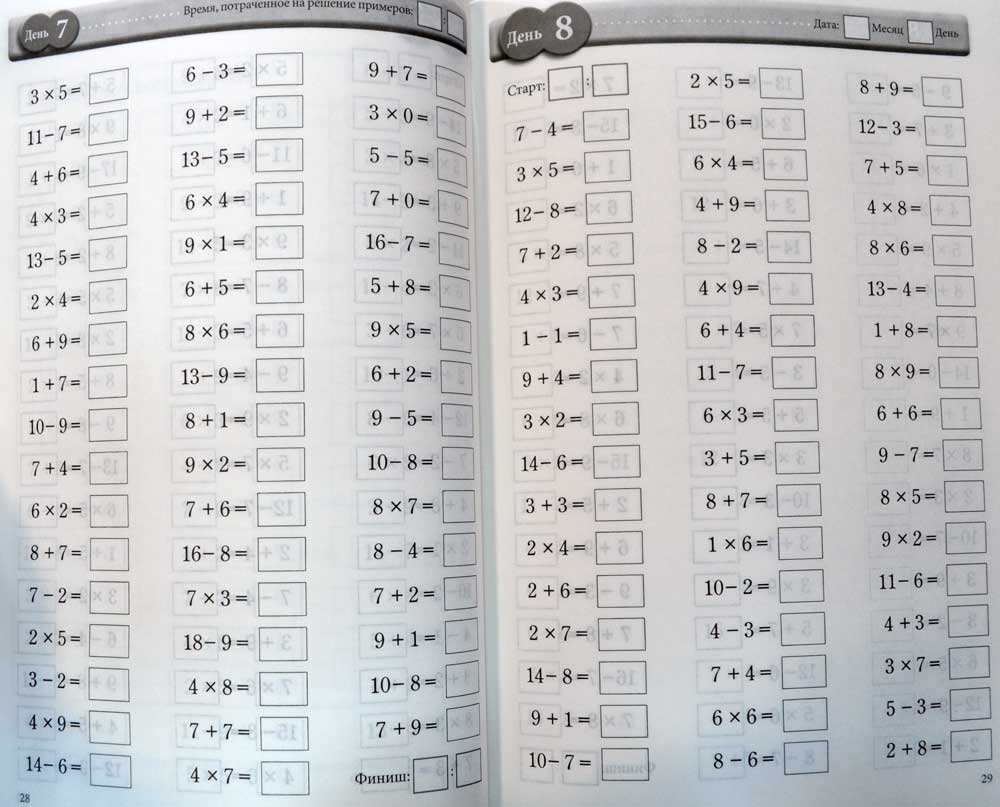 День 7
Время, потраченное на решение примеров: :
3 × 5 =
11 − 7 =
4 + 6 =
4 × 3 =
13 − 5 =
2 × 4 =
6 + 9 =
1 + 7 =
10 − 9 =
7 + 4 =
6 × 2 =
8 + 7 =
7 − 2 =
2 × 5 =
3 − 2 =
4 × 9 =
14 − 6 =
6 − 3 =
9 + 2 =
13 − 5 =
6 × 4 =
9 × 1 =
6 + 5 =
8 × 6 =
13 − 9 =
8 + 1 =
9 × 2 =
7 + 6 =
16 − 8 =
7 × 3 =
18 − 9 =
4 × 8 =
7 + 7 =
4 × 7 =
9 + 7 =
3 × 0 =
5 − 5 =
7 + 0 =
16 − 7 =
5 + 8 =
9 × 5 =
6 + 2 =
9 − 5 =
10 − 8 =
8 × 7 =
8 − 4 =
7 + 2 =
9 + 1 =
10 − 8 =
7 + 9 =
Финиш: :
28
День 8
Дата: Месяц День
Старт: :
7 − 4 =
3 × 5 =
12 − 8 =
7 + 2 =
4 × 3 =
1 − 1 =
9 + 4 =
3 × 2 =
14 − 6 =
3 + 3 =
2 × 4 =
2 + 6 =
2 × 7 =
14 − 8 =
9 + 1 =
10 − 7 =
2 × 5 =
15 − 6 =
6 × 4 =
4 + 9 =
8 − 2 =
4 × 9 =
6 + 4 =
11 − 7 =
6 × 3 =
3 + 5 =
8 + 7 =
1 × 6 =
10 − 2 =
4 − 3 =
7 + 4 =
6 × 6 =
8 − 6 =
8 + 9 =
12 − 3 =
7 + 5 =
4 × 8 =
8 × 6 =
13 − 4 =
1 + 8 =
8 × 9 =
6 + 6 =
9 − 7 =
8 × 5 =
9 × 2 =
11 − 6 =
4 + 3 =
3 × 7 =
5 − 3 =
2 + 8 =
29